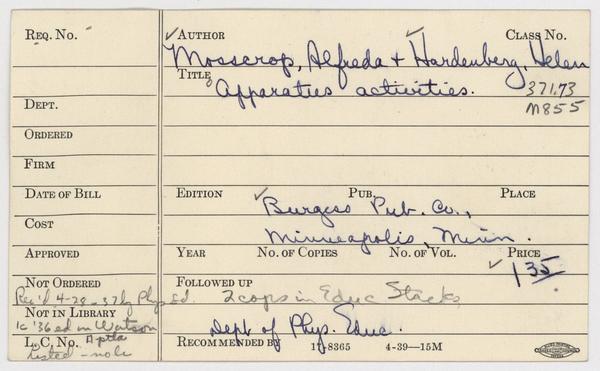 Req. No.
Author
Class No.
Mosscrop, Alfreda + Hardenberg, Helen
Title
Apparaties activities.
371.73
M855
Dept.
Ordered
Firm
Date of Bill
Edition
Pub.
Place
Burgess Pub. Co.,
Cost
Minneapolis, Minn.
Approved
Year
No. of Copies
No. of Vol.
Price
1 35
Not Ordered
Followed up
Rec'd 4-28-37 by Phys Ed.
2 cops in Educ Stacks
Not in Library
1c '36 ed in Watson
Dept of Phys. Educ.
L. C. No.
listed - no lc
Recommended by
11-8365
4-39-15M